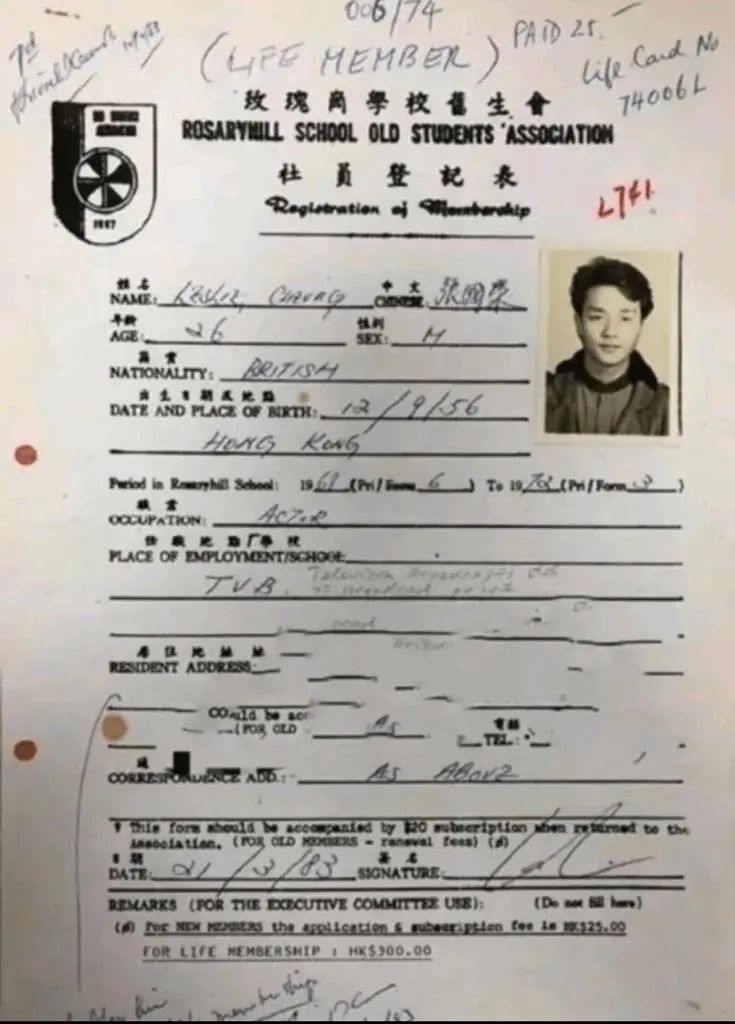 006/74
(LIFE MEMBER)
PAID 25.
Life Card No.
74006L
玫瑰崗學校舊生會
ROSARYHILL SCHOOL OLD STUDENTS' ASSOCIATION
社員登記表
Registration of Membership
L741
1957
姓名 中文
NAME: LESLIE, CHEUNG CHINESE: 張國榮
年齡 性別
AGE: 26 SEX: M
NATIONALITY: BRITISH
出生日期及地點
DATE AND PLACE OF BIRTH: 12/9/56
HONG KONG
Period in Rosaryhill School: 1968 (Pri/Form 6) To 1972 (Pri/Form 3)
職業
OCCUPATION: ACTOR
任職地點/學校
PLACE OF EMPLOYMENT/SCHOOL:
TVB. Television Broadcasts Ltd
居住地址
RESIDENT ADDRESS:
(FOR OLD As
電話
TEL:
CORRESPONDENCE ADD.: AS ABOVE
This form should be accompanied by $20 subscription when returned to the
Association. (FOR OLD MEMBERS - renewal fees) (ø)
日期 簽名
DATE: 21/3/83 SIGNATURE:
REMARKS (FOR THE EXECUTIVE COMMITTEE USE): (Do not fill here)
(ø) For NEW MEMBERS the application & subscription fee is HK$25.00
FOR LIFE MEMBERSHIP : HK$300.00
membership